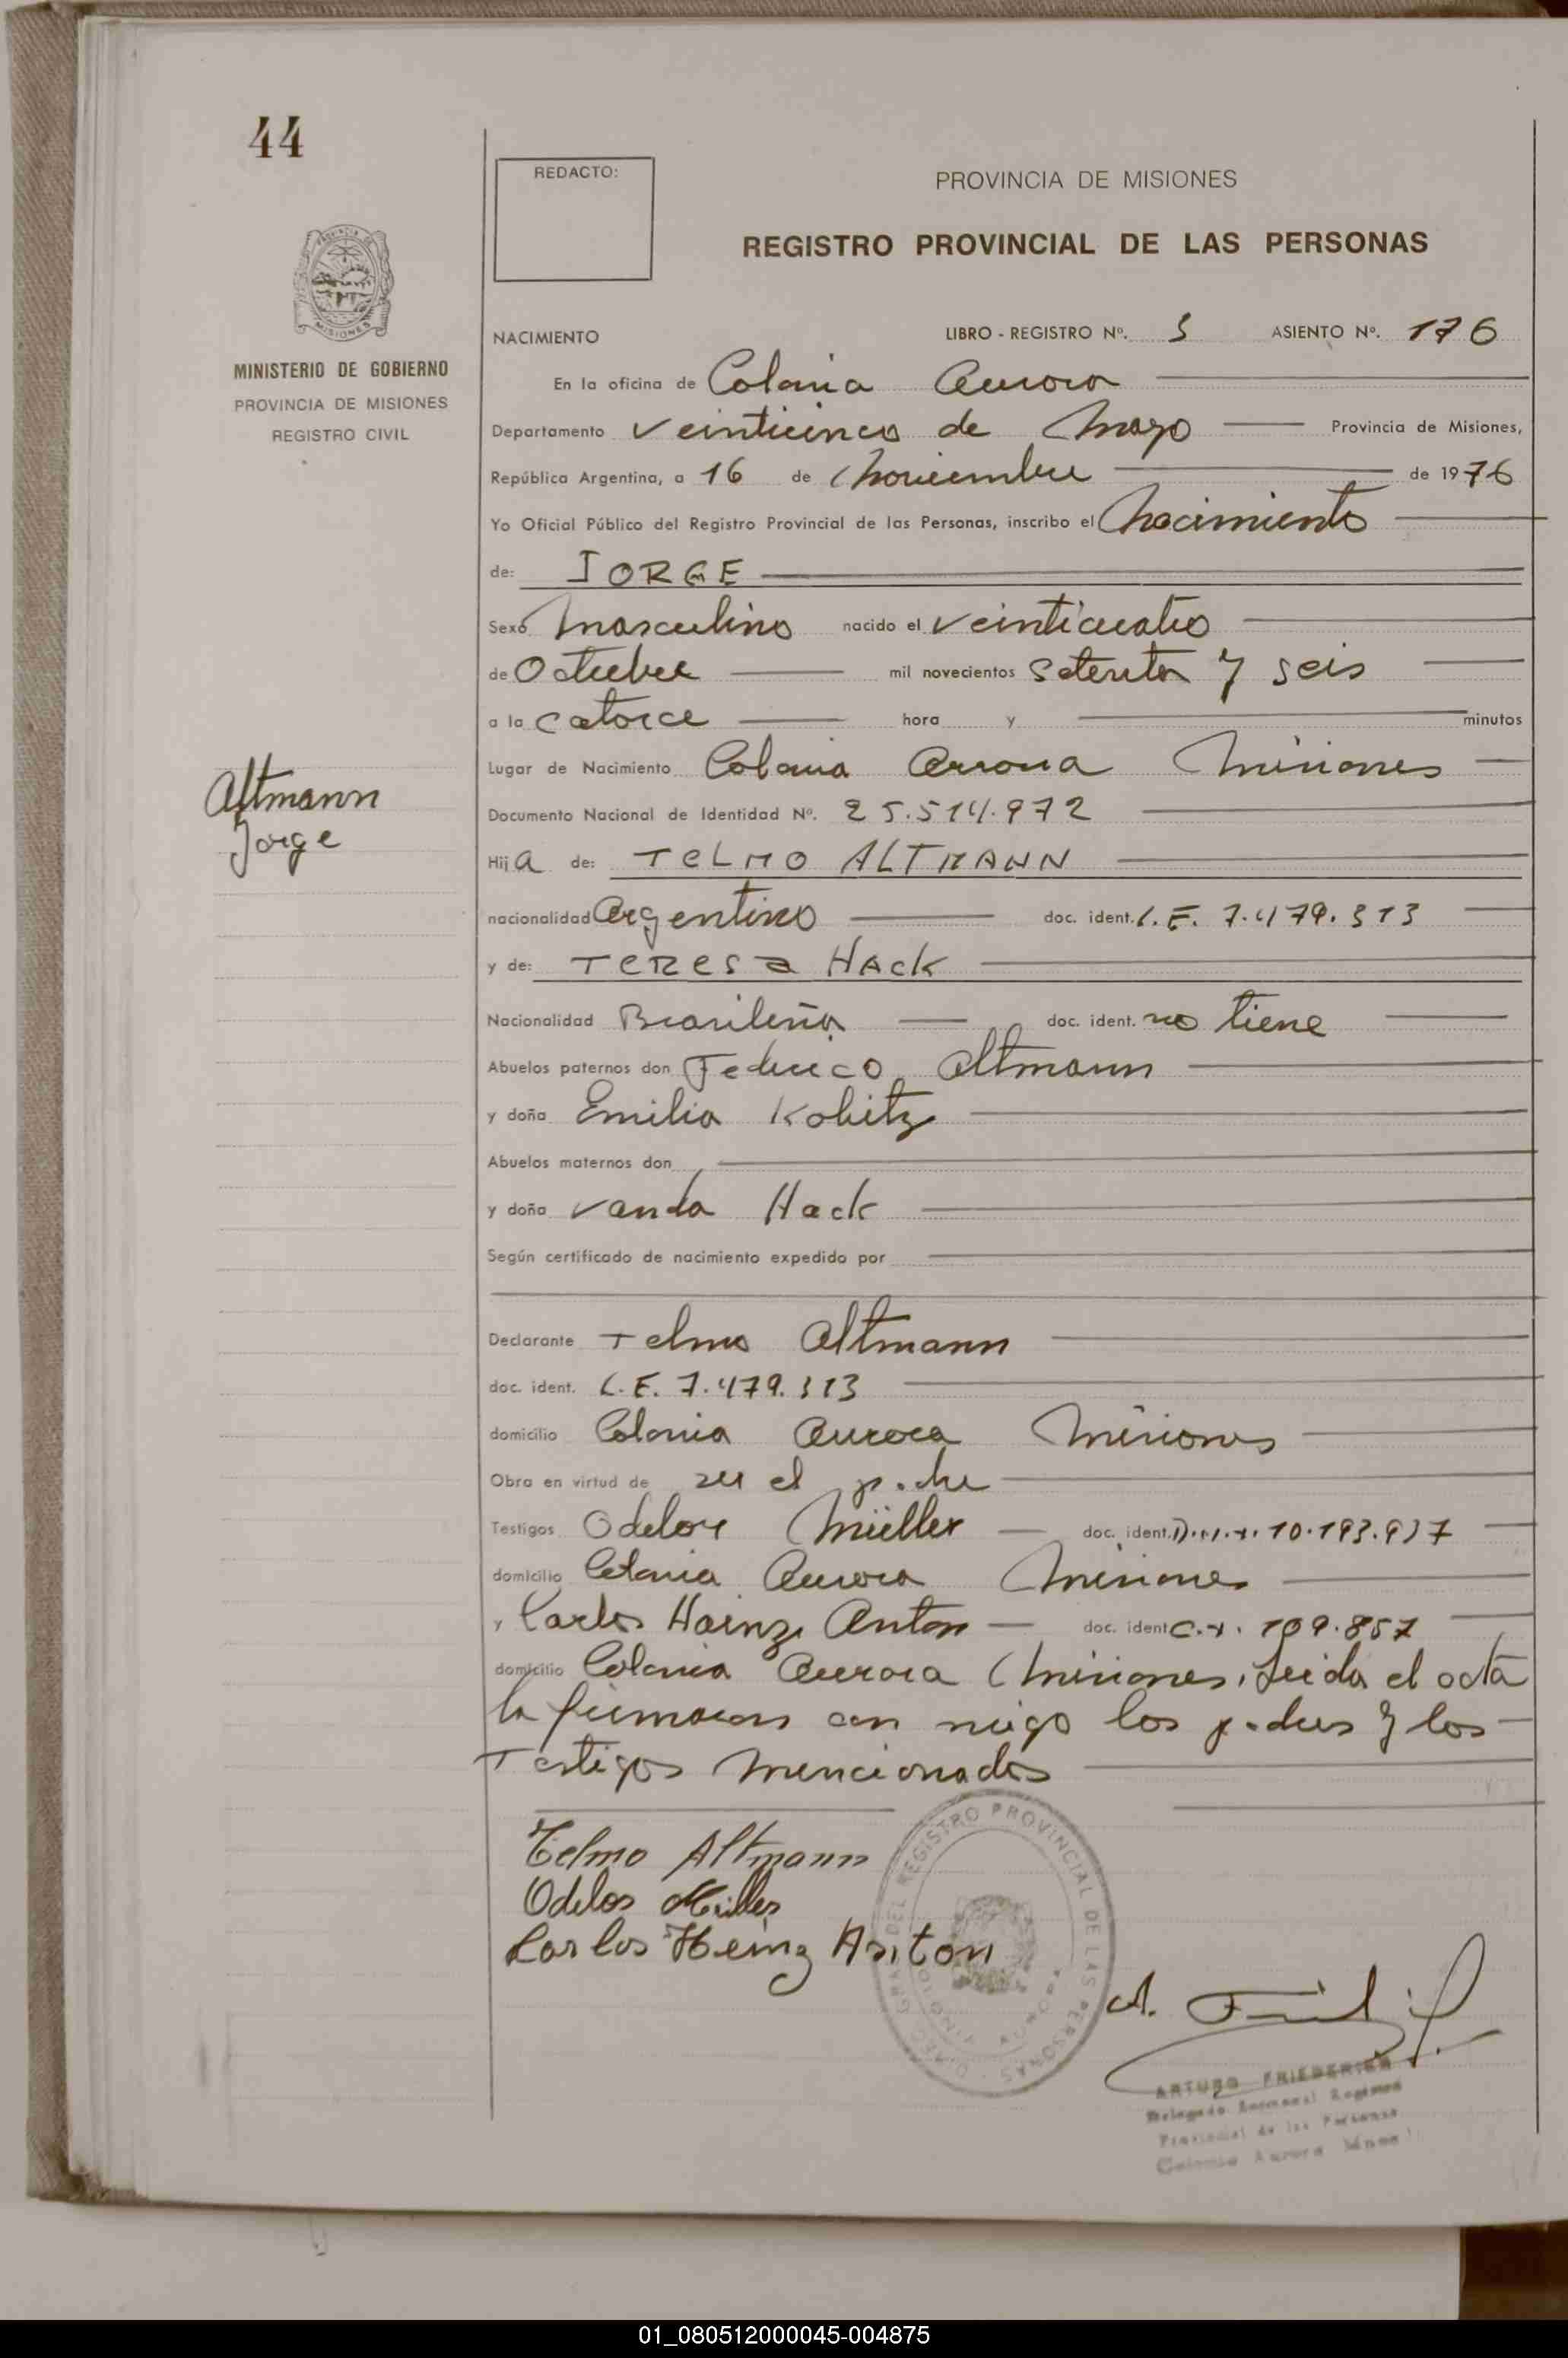 44
REDACTO:
PROVINCIA DE MISIONES
REGISTRO PROVINCIAL DE LAS PERSONAS
MISIONES
MINISTERIO DE GOBIERNO
PROVINCIA DE MISIONES
REGISTRO CIVIL
NACIMIENTO LIBRO - REGISTRO Nº. ASIENTO Nº. 176
En la oficina de Colonia Aurora
Departamento Veinticinco de Mayo Provincia de Misiones,
República Argentina, a 16 de Noviembre de 1976
Yo Oficial Público del Registro Provincial de las Personas, inscribo el Nacimiento
de: JORGE
Sexo Masculino nacido el veinticuatro
de Octubre mil novecientos setenta y seis
a la catorce hora y minutos
Lugar de Nacimiento Colonia Aurora Misiones
Altmann
Jorge
Documento Nacional de Identidad Nº. 25.514.972
Hij a de: TELMO ALTMANN
nacionalidad Argentino doc. ident. L.E. 7.479.313
y de: TERESA HACK
Nacionalidad Brasileña doc. ident. no tiene
Abuelos paternos don Federico Altmann
y doña Emilia Kobitz
Abuelos maternos don
y doña Vanda Hack
Según certificado de nacimiento expedido por
Declarante Telmo Altmann
doc. ident. L.E. 7.479.313
domicilio Colonia Aurora Misiones
Obra en virtud de ser el padre
Testigos Odelor Müller doc. ident. D.N.I. 10.193.937
domicilio Colonia Aurora Misiones
y Carlos Hainz Anton doc. ident C.I. 109.857
domicilio Colonia Aurora Misiones, Leida el acta
la firmaron con migo los padres y los
Testigos mencionados
Telmo Altmann
Odelor Müller
Carlos Heinz Anton
DEL REGISTRO PROVINCIAL DE LAS PERSONAS
ARTURO FRIEDERICH
Delegado Registro
Provincial de las Personas
Colonia Aurora Mnes
01_080512000045-004875